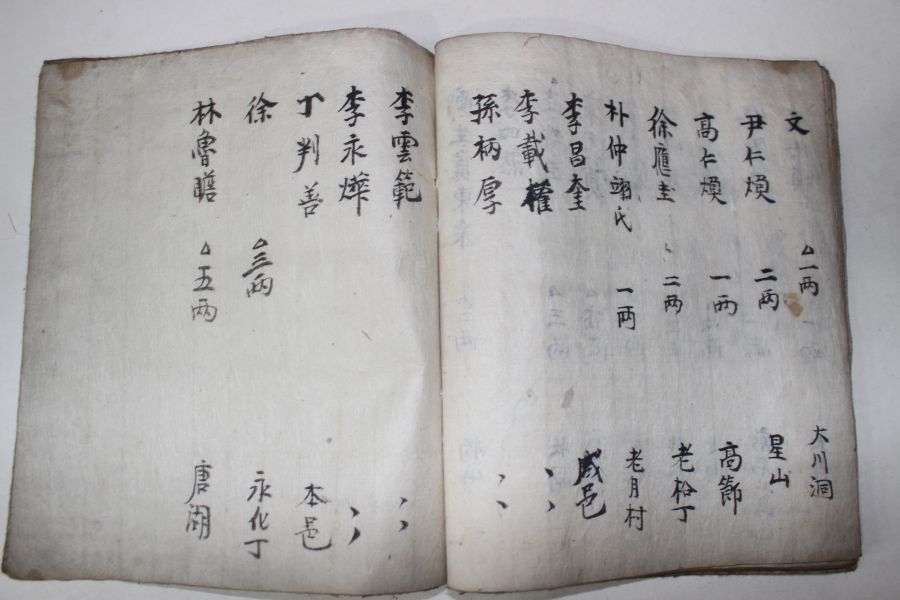 文 一兩 大川洞
尹仁煩 二兩 星山
高仁煥 一兩 高節
徐應圭 二兩 老松丁
朴仲 氏 一兩 老月村
李昌奎 咸邑
李載權 〻
孫柄厚 〻
李雲範 〻
李永燁 〻
丁判善 本邑
徐 三兩 永化丁
林魯瞻 五兩 唐湖